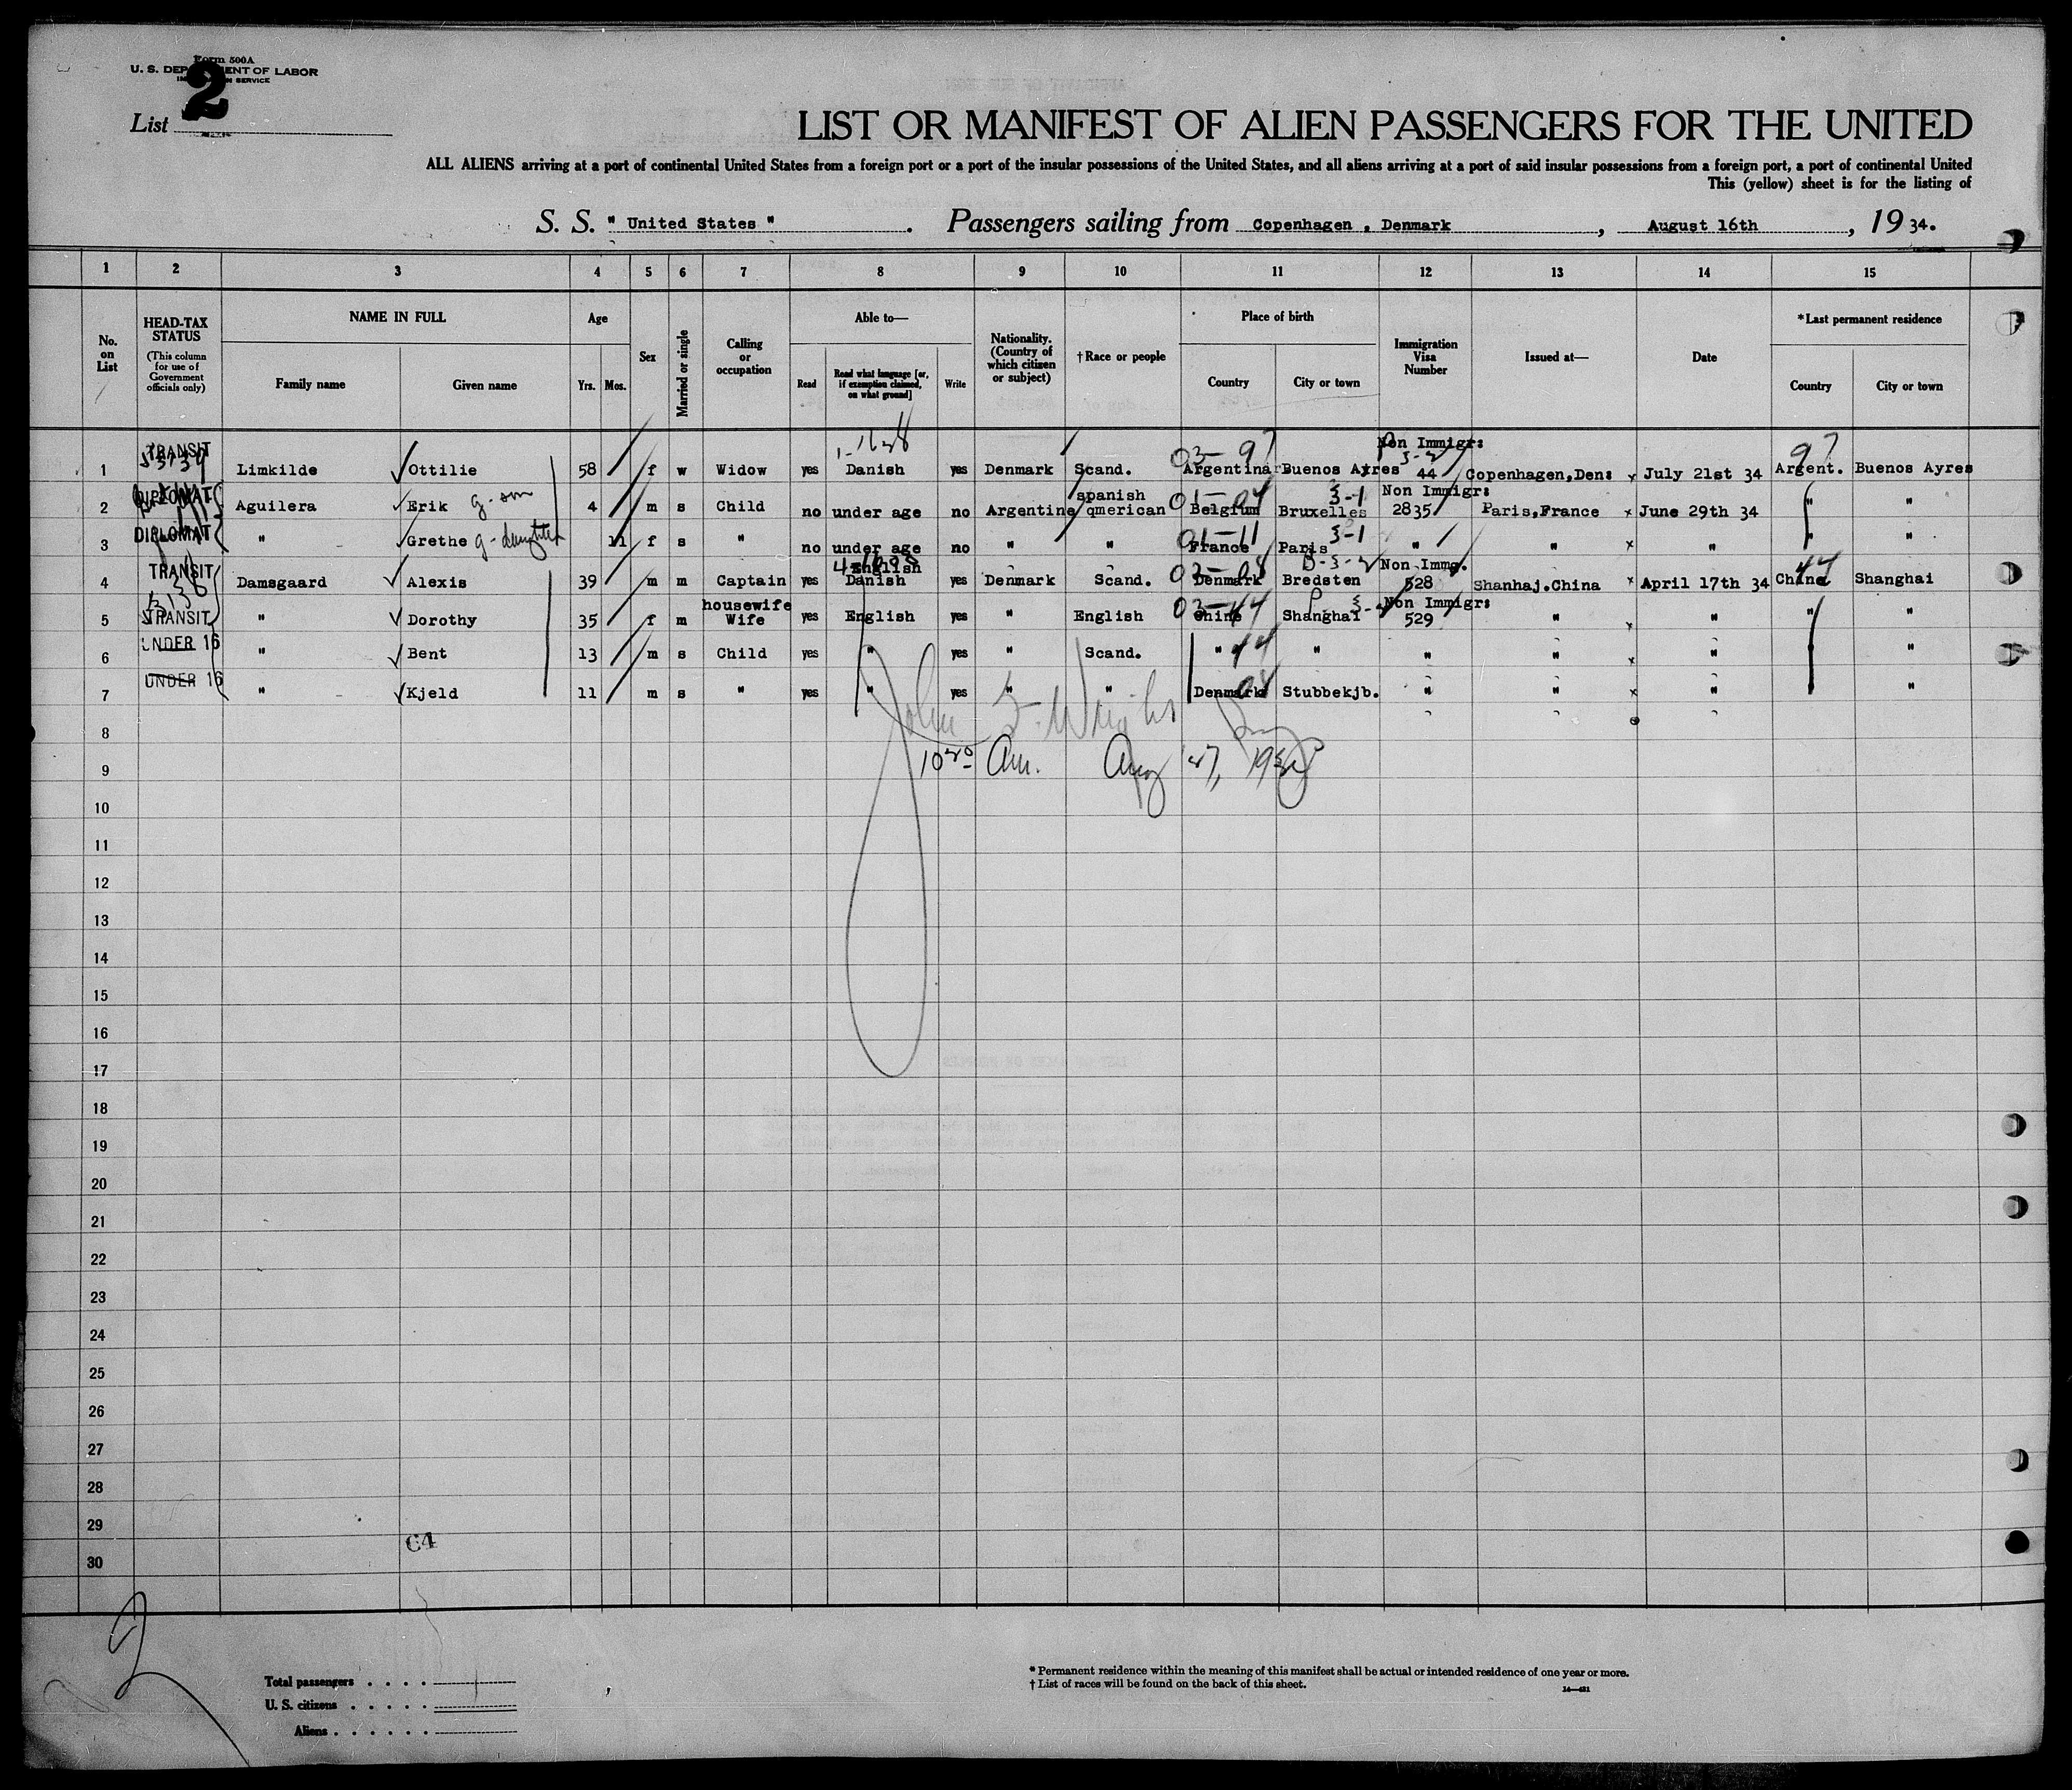 Form 500A
U. S. DEPARTMENT OF LABOR
2
List
LIST OR MANIFEST OF ALIEN PASSENGERS FOR THE UNITED
ALL ALIENS arriving at a port of continental United States from a foreign port or a port of the insular possessions of the United States, and all aliens arriving at a port of said insular possessions from a foreign port, a port of continental United
This (yellow) sheet is for the listing of
S. S. " United States " . Passengers sailing from Copenhagen , Denmark , August 16th , 19 34.
1 2 3 4 5 6 7 8 9 10 11 12 13 14 15
No. on List
HEAD-TAX STATUS
(This column for use of Government officials only)
NAME IN FULL
Family name Given name
Age
Yrs. Mos.
Sex
Married or single
Calling or occupation
Able to—
Read
Read what language [or, if exemption claimed, on what ground]
Write
Nationality. (Country of which citizen or subject)
†Race or people
Place of birth
Country City or town
Immigration Visa Number
Issued at—
Date
*Last permanent residence
Country City or town
TRANSIT Non Immigr: 97
1 Limkilde Ottilie 58 f w Widow yes Danish yes Denmark Scand. 03-97 Argentina Buenos Ayres 44 Copenhagen,Den: July 21st 34 Argent. Buenos Ayres
DIPLOMAT spanish 3-1 Non Immigr:
2 Aguilera Erik g-son 4 m s Child no under age no Argentine qmerican Belgium Bruxelles 2835 Paris,France x June 29th 34 " "
DIPLOMAT 01-11 3-1
3 " Grethe g-daughter 11 f s " no under age no " " France Paris " " x " " "
TRANSIT English Non Immg.
4 Damsgaard Alexis 39 m m Captain yes Danish yes Denmark Scand. Denmark Bredsten 528 Shanhaj.China x April 17th 34 China Shanghai
TRANSIT housewife 03-44 Non Immigr:
5 " Dorothy 35 f m Wife yes English yes " English China Shanghai 529 " x " " "
UNDER 16
6 " Bent 13 m s Child yes " yes " Scand. " 44 " " " x " "
UNDER 16
7 " Kjeld 11 m s " yes " yes " " Denmark Stubbekjb. " " x " "
8
John Wright
9 Am. Aug 27, 1934
10
11
12
13
14
15
16
17
18
19
20
21
22
23
24
25
26
27
28
29
C4
30
2
Total passengers
U. S. citizens
Aliens
* Permanent residence within the meaning of this manifest shall be actual or intended residence of one year or more.
† List of races will be found on the back of this sheet.